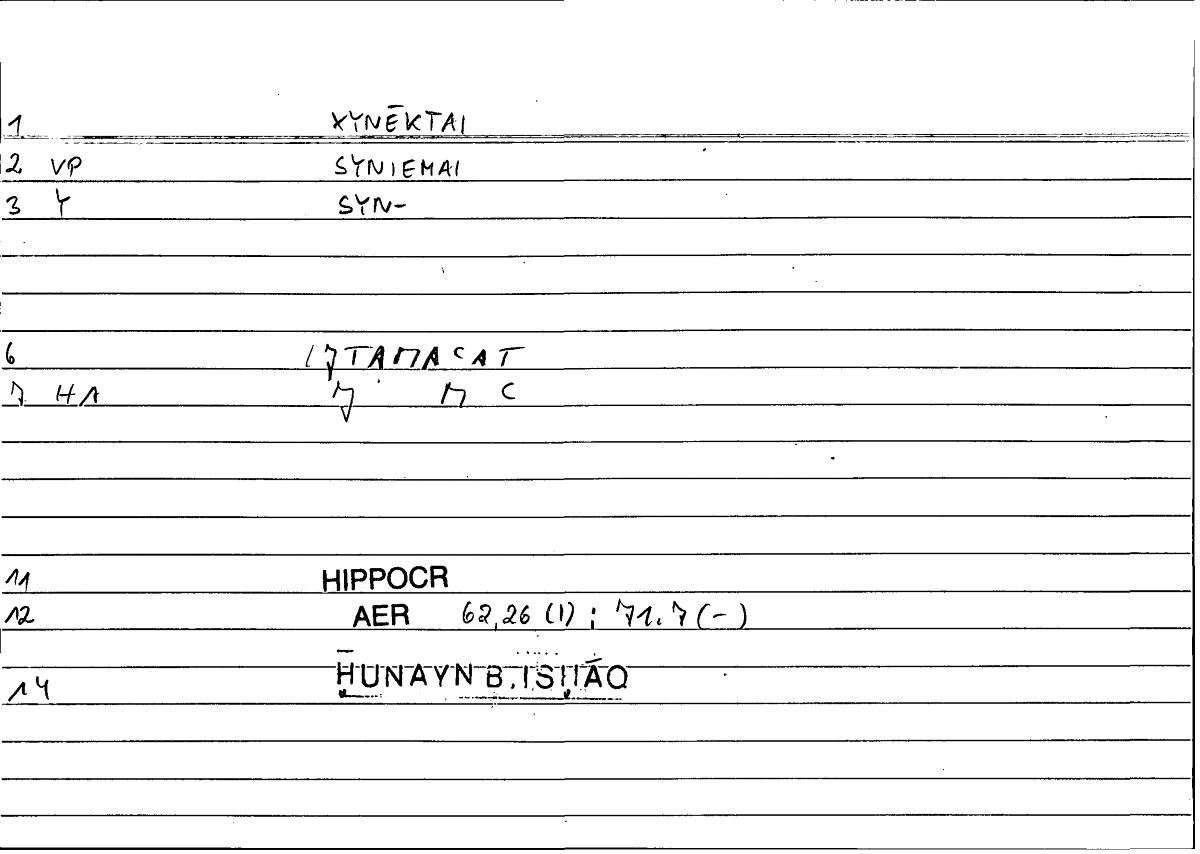 1 XYNĒKTAI
2 VP SYNIEMAI
3 Y SYN-
6
7
11 HIPPOCR
12 AER 62,26 (1) ; 71.7 (-)
14 ḤUNAYN B. ISḤĀQ